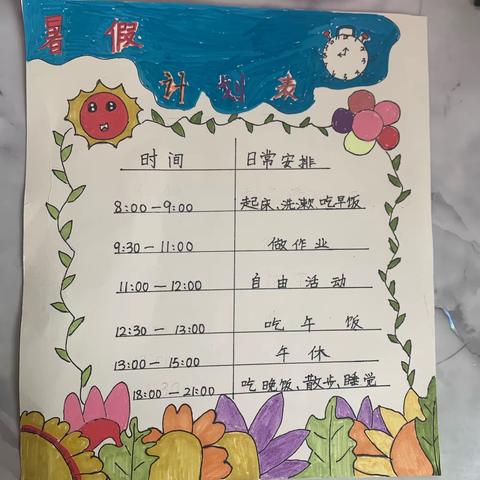 暑假
计划表
时间 日常安排
8:00-9:00 起床、洗漱、吃早饭
9:30-11:00 做作业
11:00-12:00 自由活动
12:30-13:00 吃午饭
13:00-15:00 午休
18:00-21:00 吃晚饭、散步、睡觉